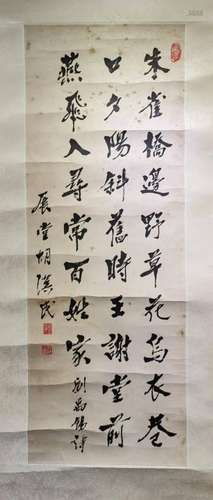 朱雀橋邊野草花烏衣巷
口夕陽斜舊時王謝堂前
燕飛入尋常百姓家 劉禹錫詩
展堂胡漢民